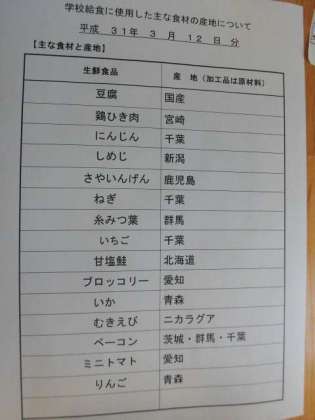 学校給食に使用した主な食材の産地について
平成 31年 3月 12日 分
【主な食材と産地】
生鮮食品 産 地（加工品は原材料）
豆腐 国産
鶏ひき肉 宮崎
にんじん 千葉
しめじ 新潟
さやいんげん 鹿児島
ねぎ 千葉
糸みつ葉 群馬
いちご 千葉
甘塩鮭 北海道
ブロッコリー 愛知
いか 青森
むきえび ニカラグア
ベーコン 茨城・群馬・千葉
ミニトマト 愛知
りんご 青森